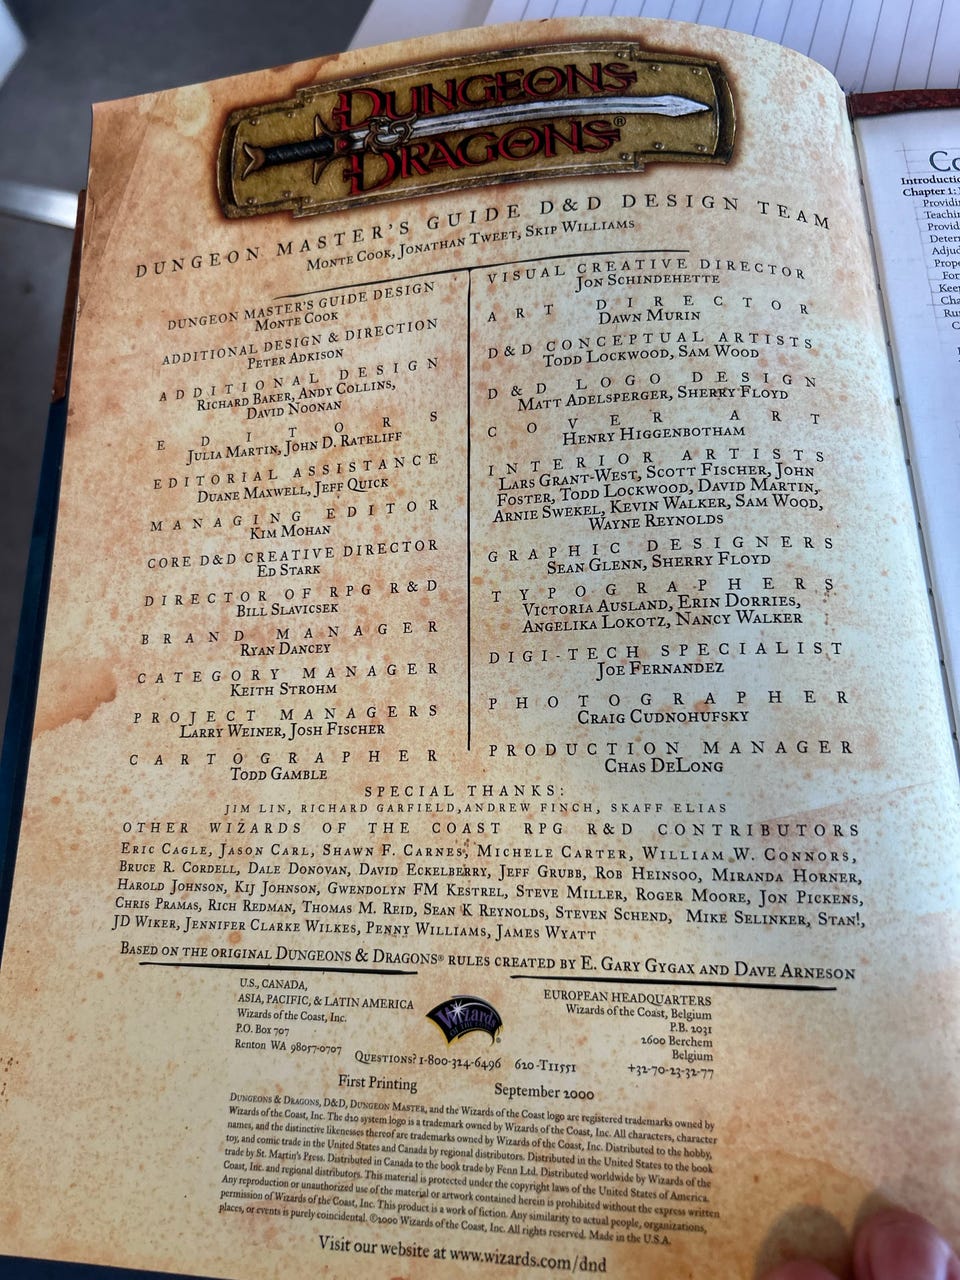 DUNGEONS
DRAGONS®
DUNGEON MASTER'S GUIDE D&D DESIGN TEAM
MONTE COOK, JONATHAN TWEET, SKIP WILLIAMS
DUNGEON MASTER'S GUIDE DESIGN
MONTE COOK
ADDITIONAL DESIGN & DIRECTION
PETER ADKISON
ADDITIONAL DESIGN
RICHARD BAKER, ANDY COLLINS,
DAVID NOONAN
EDITORS
JULIA MARTIN, JOHN D. RATELIFF
EDITORIAL ASSISTANCE
DUANE MAXWELL, JEFF QUICK
MANAGING EDITOR
KIM MOHAN
CORE D&D CREATIVE DIRECTOR
ED STARK
DIRECTOR OF RPG R&D
BILL SLAVICSEK
BRAND MANAGER
RYAN DANCEY
CATEGORY MANAGER
KEITH STROHM
PROJECT MANAGERS
LARRY WEINER, JOSH FISCHER
CARTOGRAPHER
TODD GAMBLE
VISUAL CREATIVE DIRECTOR
JON SCHINDEHETTE
ART DIRECTOR
DAWN MURIN
D&D CONCEPTUAL ARTISTS
TODD LOCKWOOD, SAM WOOD
D&D LOGO DESIGN
MATT ADELSPERGER, SHERRY FLOYD
COVER ART
HENRY HIGGENBOTHAM
INTERIOR ARTISTS
LARS GRANT-WEST, SCOTT FISCHER, JOHN
FOSTER, TODD LOCKWOOD, DAVID MARTIN,
ARNIE SWEKEL, KEVIN WALKER, SAM WOOD,
WAYNE REYNOLDS
GRAPHIC DESIGNERS
SEAN GLENN, SHERRY FLOYD
TYPOGRAPHERS
VICTORIA AUSLAND, ERIN DORRIES,
ANGELIKA LOKOTZ, NANCY WALKER
DIGI-TECH SPECIALIST
JOE FERNANDEZ
PHOTOGRAPHER
CRAIG CUDNOHUFSKY
PRODUCTION MANAGER
CHAS DELONG
SPECIAL THANKS:
JIM LIN, RICHARD GARFIELD, ANDREW FINCH, SKAFF ELIAS
OTHER WIZARDS OF THE COAST RPG R&D CONTRIBUTORS
ERIC CAGLE, JASON CARL, SHAWN F. CARNES, MICHELE CARTER, WILLIAM W. CONNORS,
BRUCE R. CORDELL, DALE DONOVAN, DAVID ECKELBERRY, JEFF GRUBB, ROB HEINSOO, MIRANDA HORNER,
HAROLD JOHNSON, KIJ JOHNSON, GWENDOLYN FM KESTREL, STEVE MILLER, ROGER MOORE, JON PICKENS,
CHRIS PRAMAS, RICH REDMAN, THOMAS M. REID, SEAN K REYNOLDS, STEVEN SCHEND, MIKE SELINKER, STAN!,
JD WIKER, JENNIFER CLARKE WILKES, PENNY WILLIAMS, JAMES WYATT
BASED ON THE ORIGINAL DUNGEONS & DRAGONS® RULES CREATED BY E. GARY GYGAX AND DAVE ARNESON
U.S., CANADA,
ASIA, PACIFIC, & LATIN AMERICA
Wizards of the Coast, Inc.
P.O. Box 707
Renton WA 98057-0707
Wizards
OF THE COAST
EUROPEAN HEADQUARTERS
Wizards of the Coast, Belgium
P.B. 2031
2600 Berchem
Belgium
+32-70-23-32-77
QUESTIONS? 1-800-324-6496 620-T11551
First Printing September 2000
DUNGEONS & DRAGONS, D&D, DUNGEON MASTER, and the Wizards of the Coast logo are registered trademarks owned by
Wizards of the Coast, Inc. The d20 system logo is a trademark owned by Wizards of the Coast, Inc. All characters, character
names, and the distinctive likenesses thereof are trademarks owned by Wizards of the Coast, Inc. Distributed to the hobby,
toy, and comic trade in the United States and Canada by regional distributors. Distributed in the United States to the book
trade by St. Martin's Press. Distributed in Canada to the book trade by Fenn Ltd. Distributed worldwide by Wizards of the
Coast, Inc. and regional distributors. This material is protected under the copyright laws of the United States of America.
Any reproduction or unauthorized use of the material or artwork contained herein is prohibited without the express written
permission of Wizards of the Coast, Inc. This product is a work of fiction. Any similarity to actual people, organizations,
places, or events is purely coincidental. ©2000 Wizards of the Coast, Inc. All rights reserved. Made in the U.S.A.
Visit our website at www.wizards.com/dnd
Co
Introductio
Chapter 1:
Providi
Teachin
Provid
Deter
Adjud
Prope
For
Kee
Cha
Ru
C